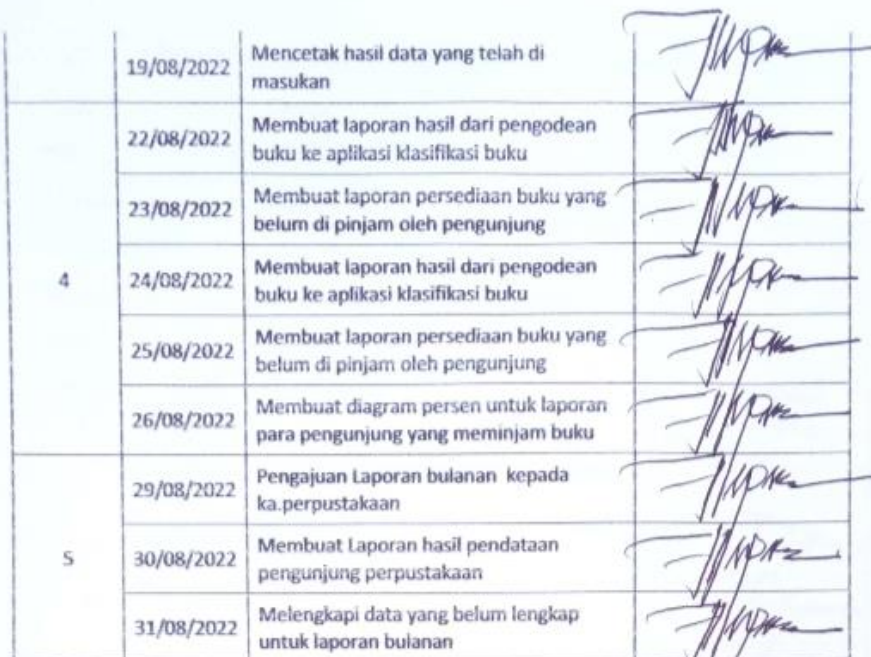 19/08/2022
Mencetak hasil data yang telah di
masukan
4
22/08/2022
Membuat laporan hasil dari pengodean
buku ke aplikasi klasifikasi buku
23/08/2022
Membuat laporan persediaan buku yang
belum di pinjam oleh pengunjung
24/08/2022
Membuat laporan hasil dari pengodean
buku ke aplikasi klasifikasi buku
25/08/2022
Membuat laporan persediaan buku yang
belum di pinjam oleh pengunjung
26/08/2022
Membuat diagram persen untuk laporan
para pengunjung yang meminjam buku
5
29/08/2022
Pengajuan Laporan bulanan kepada
ka.perpustakaan
30/08/2022
Membuat Laporan hasil pendataan
pengunjung perpustakaan
31/08/2022
Melengkapi data yang belum lengkap
untuk laporan bulanan